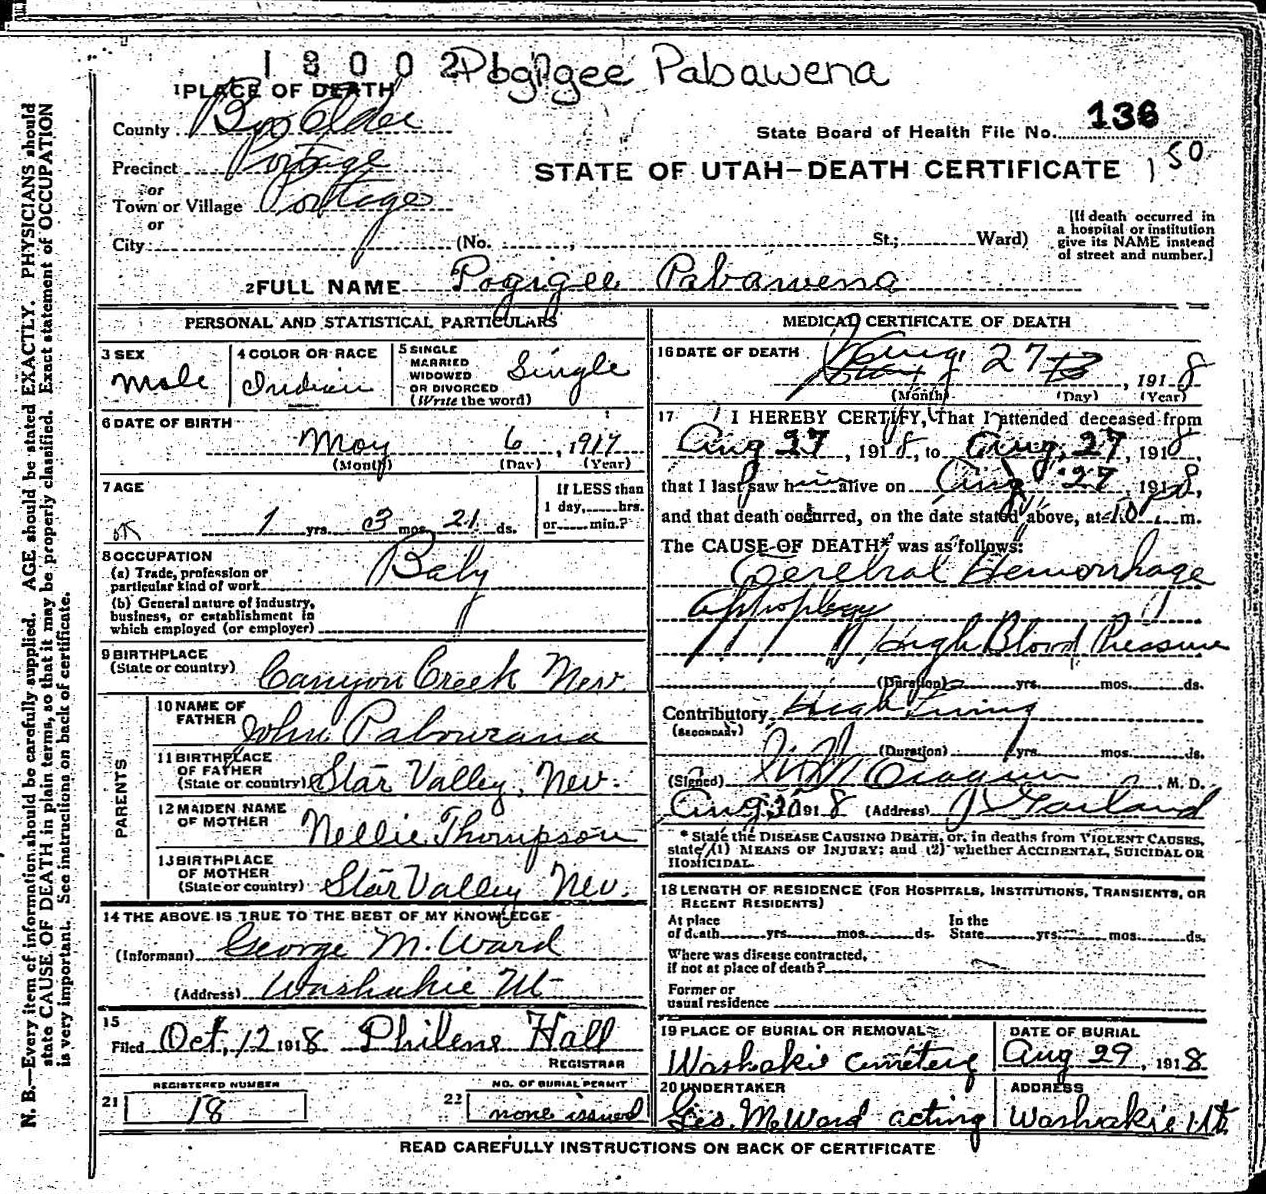 1 8 0 0 2 Pogigee Pabawena
1 PLACE OF DEATH
County Box Elder
State Board of Health File No. 136
Precinct Portage
STATE OF UTAH—DEATH CERTIFICATE 150
or
Town or Village Portage
or
City (No. , St.; Ward)
[If death occurred in
a hospital or institution
give its NAME instead
of street and number.]
2 FULL NAME Pogigee Pabawena
PERSONAL AND STATISTICAL PARTICULARS
3 SEX
Male
4 COLOR OR RACE
Indian
5 SINGLE
MARRIED
WIDOWED
OR DIVORCED
(Write the word)
Single
6 DATE OF BIRTH
May 6, 1917
(Month) (Day) (Year)
7 AGE
OK 1 yrs. 3 mos. 21 ds.
If LESS than
1 day, hrs.
or min.?
8 OCCUPATION
(a) Trade, profession or
particular kind of work Baby
(b) General nature of industry,
business, or establishment in
which employed (or employer)
9 BIRTHPLACE
(State or country) Canyon Creek Nev.
PARENTS
10 NAME OF
FATHER John
11 BIRTHPLACE
OF FATHER
(State or country) Star Valley, Nev.
12 MAIDEN NAME
OF MOTHER Nellie Thompson
13 BIRTHPLACE
OF MOTHER
(State or country) Star Valley Nev.
14 THE ABOVE IS TRUE TO THE BEST OF MY KNOWLEDGE
(Informant) George M. Ward
(Address) Washakie Ut
15
Filed Oct, 12 1918 Philene Hall
REGISTRAR
REGISTERED NUMBER
21 18
NO. OF BURIAL PERMIT
22 none issued
MEDICAL CERTIFICATE OF DEATH
16 DATE OF DEATH Aug. 27, 1918
(Month) (Day) (Year)
17 I HEREBY CERTIFY, That I attended deceased from
Aug 27, 1918, to Aug. 27, 1918,
that I last saw him alive on Aug 27 1918,
and that death occurred, on the date stated above, at 10 m.
The CAUSE OF DEATH* was as follows:
Cerebral Hemorrhage
High Blood Pressure
(Duration) yrs. mos. ds.
Contributory High Living
(SECONDARY)
(Duration) yrs. mos. ds.
(Signed) M. D.
Aug 30 1918 (Address) Garland
* State the DISEASE CAUSING DEATH, or, in deaths from VIOLENT CAUSES,
state (1) MEANS OF INJURY; and (2) whether ACCIDENTAL, SUICIDAL OR
HOMICIDAL.
18 LENGTH OF RESIDENCE (FOR HOSPITALS, INSTITUTIONS, TRANSIENTS, OR
RECENT RESIDENTS)
At place
of death yrs. mos. ds.
In the
State yrs. mos. ds.
Where was disease contracted,
if not at place of death?
Former or
usual residence
19 PLACE OF BURIAL OR REMOVAL
Washakie cemetery
DATE OF BURIAL
Aug 29, 1918.
20 UNDERTAKER
Geo. M. Ward acting
ADDRESS
Washakie Ut.
READ CAREFULLY INSTRUCTIONS ON BACK OF CERTIFICATE
N. B.—Every item of information should be carefully supplied. AGE should be stated EXACTLY. PHYSICIANS should
state CAUSE OF DEATH in plain terms, so that it may be properly classified. Exact statement of OCCUPATION
is very important. See instructions on back of certificate.